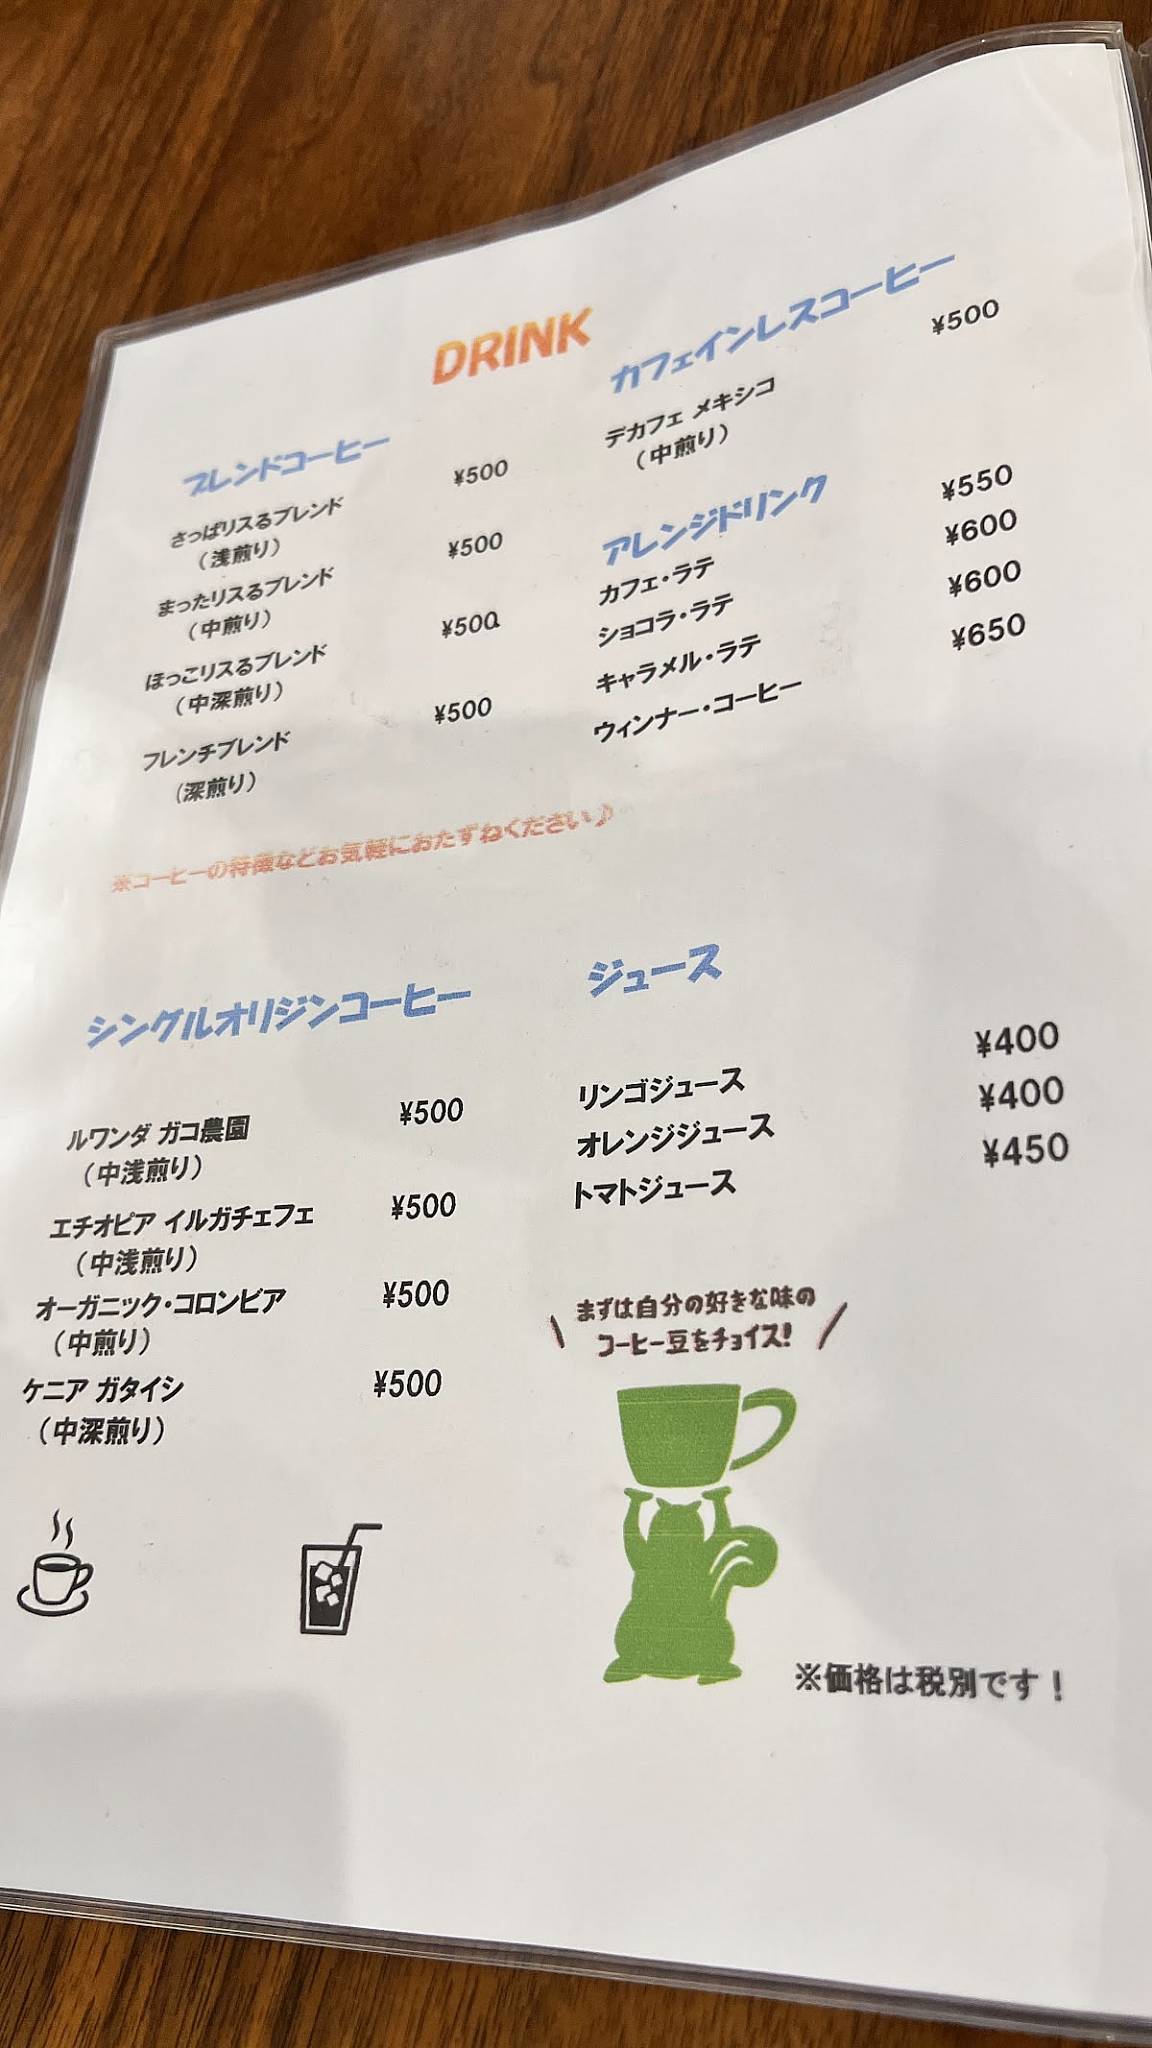 DRINK
ブレンドコーヒー
さっぱリスるブレンド ¥500
（浅煎り）
まったリスるブレンド ¥500
（中煎り）
ほっこリスるブレンド ¥500
（中深煎り）
フレンチブレンド ¥500
（深煎り）
※コーヒーの特徴などお気軽におたずねください♪
カフェインレスコーヒー
デカフェ メキシコ ¥500
（中煎り）
アレンジドリンク
カフェ・ラテ ¥550
ショコラ・ラテ ¥600
キャラメル・ラテ ¥600
ウィンナー・コーヒー ¥650
シングルオリジンコーヒー
ルワンダ ガコ農園 ¥500
（中浅煎り）
エチオピア イルガチェフェ ¥500
（中浅煎り）
オーガニック・コロンビア ¥500
（中煎り）
ケニア ガタイシ ¥500
（中深煎り）
ジュース
リンゴジュース ¥400
オレンジジュース ¥400
トマトジュース ¥450
まずは自分の好きな味の
コーヒー豆をチョイス!
※価格は税別です！